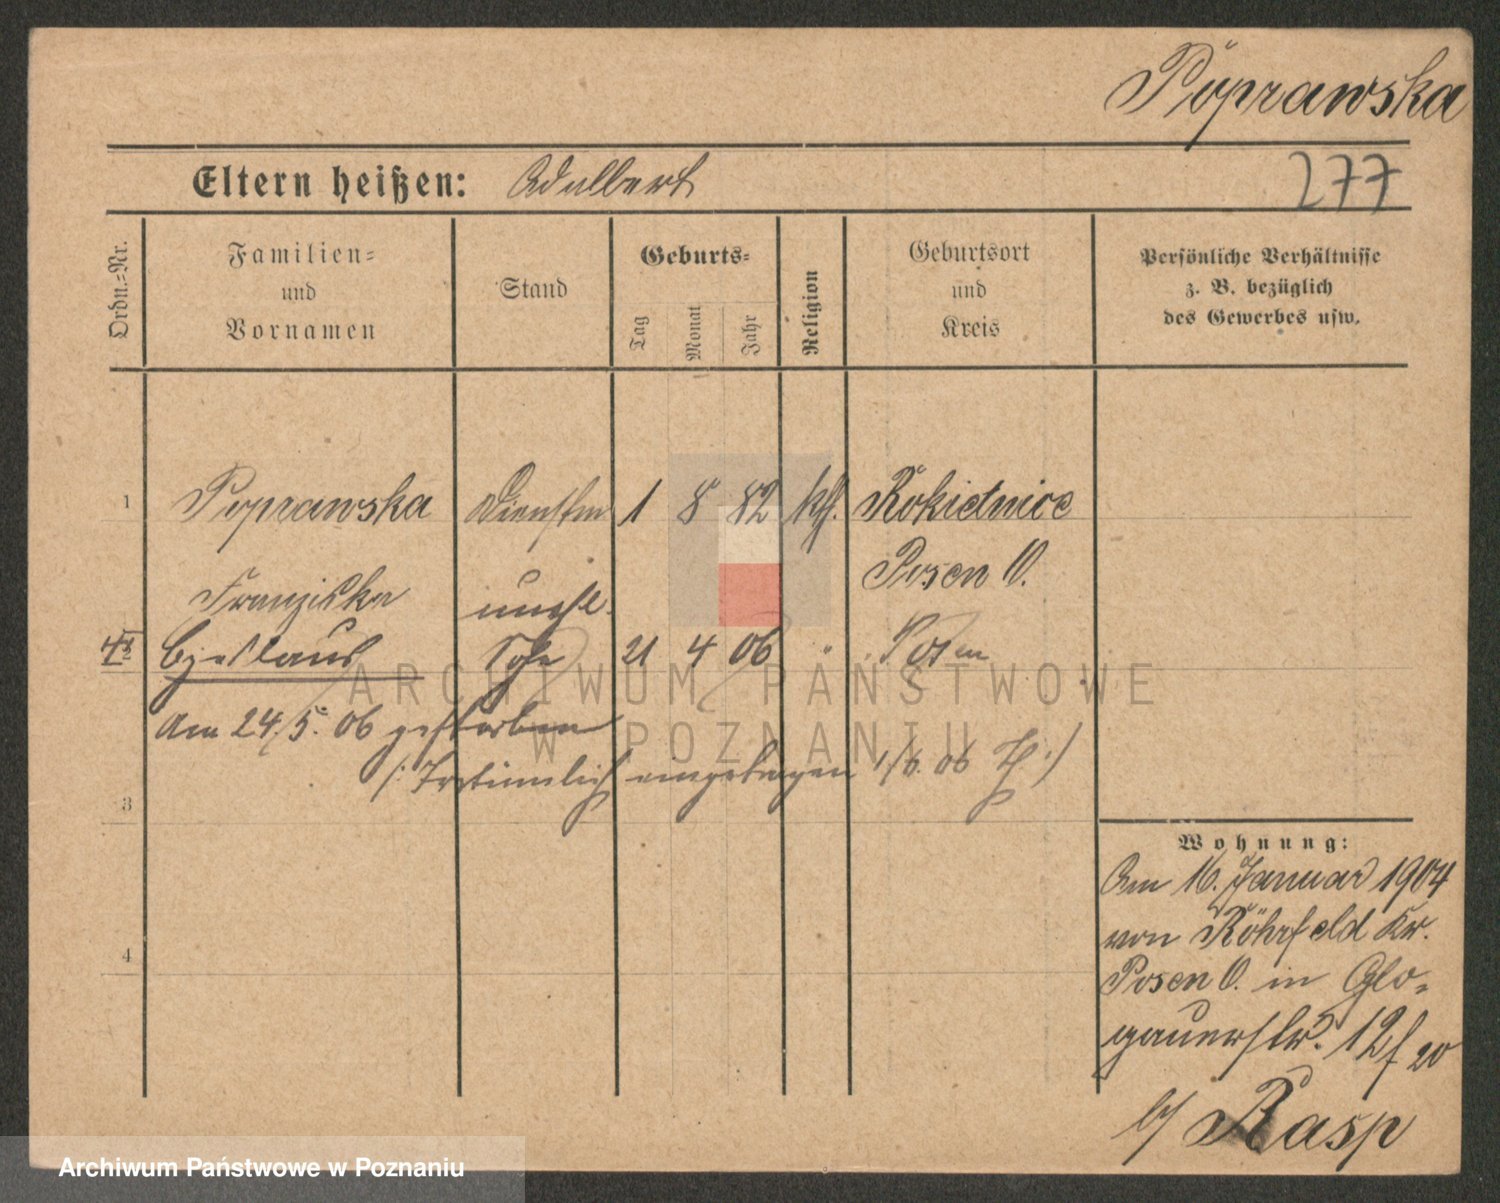 Poprawska
Eltern heißen: Adalbert
277
Ordn.=Nr.
Familien=
und
Vornamen
Stand
Geburts=
Tag
Monat
Jahr
Religion
Geburtsort
und
Kreis
Persönliche Verhältnisse
z. B. bezüglich
des Gewerbes usw.
1 Poprawska Dienstm 1 8 82 kth. Rokietnice
Posen O.
Franziska unehl.
Sohn 21 4 06 " Posen
Am 24.5. 06 gestorben
(: Irrtümlich eingetragen 1/6. 06 :)
3
4
Wohnung:
Am 16. Januar 1904
von Röhrfeld Kr.
Posen O. in Glo=
gauerstr. 12f 20
b/ Rasp
ARCHIWUM PAŃSTWOWE
W POZNANIU
Archiwum Państwowe w Poznaniu